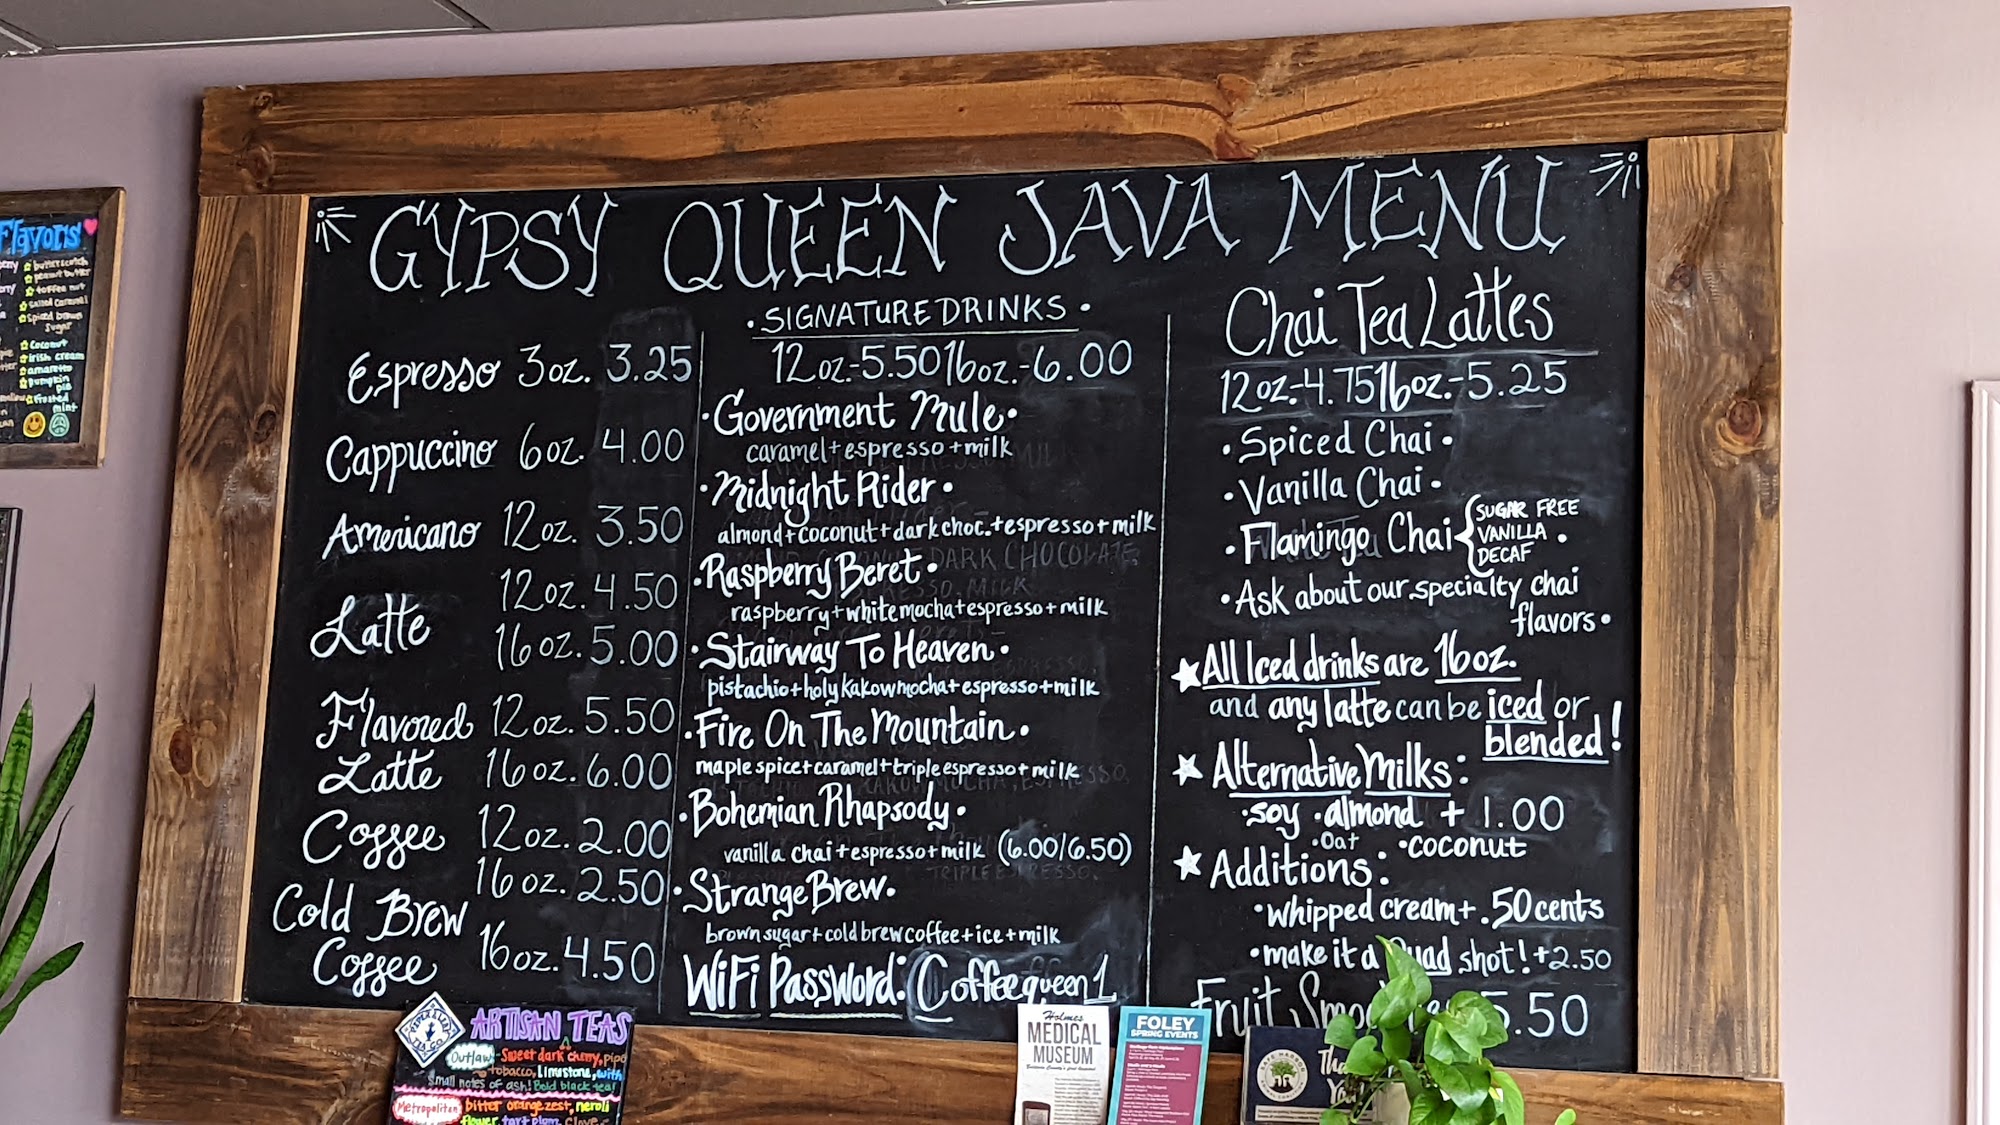 GYPSY QUEEN JAVA MENU
Espresso 3oz. 3.25
Cappuccino 6oz. 4.00
Americano 12oz. 3.50
Latte 12oz. 4.50
16oz. 5.00
Flavored 12oz. 5.50
Latte 16oz. 6.00
Coffee 12oz. 2.00
16oz. 2.50
Cold Brew
Coffee 16oz. 4.50
• SIGNATURE DRINKS •
12oz.-5.50 16oz.-6.00
• Government Mule •
caramel + espresso + milk
• Midnight Rider •
almond + coconut + dark choc. + espresso + milk
• Raspberry Beret •
raspberry + white mocha + espresso + milk
• Stairway To Heaven •
pistachio + holy kakow mocha + espresso + milk
• Fire On The Mountain •
maple spice + caramel + triple espresso + milk
• Bohemian Rhapsody •
vanilla chai + espresso + milk (6.00/6.50)
• Strange Brew •
brown sugar + cold brew coffee + ice + milk
WiFi Password: Coffeequeen1
Chai Tea Lattes
12oz.-4.75 16oz.-5.25
• Spiced Chai •
• Vanilla Chai •
• Flamingo Chai { SUGAR FREE
VANILLA •
DECAF
• Ask about our specialty chai
flavors •
★ All Iced drinks are 16oz.
and any latte can be iced or
blended!
★ Alternative Milks:
• soy • almond + 1.00
• Oat • coconut
★ Additions:
• whipped cream + .50 cents
• make it a Quad shot! + 2.50
Fruit 5.50
Flavors
butterscotch
peanut butter
toffee nut
salted caramel
spiced brown
sugar
coconut
irish cream
amaretto
pumpkin
pie
frosted
mint
ARTISAN TEAS
TEA CO.
Outlaw - Sweet dark cherry, pipe
tobacco, limestone, with
small notes of ash! Bold black tea!
Metropolitan bitter orange zest, neroli
flower, tart plum, clove
Holmes
MEDICAL
MUSEUM
FOLEY
SPRING EVENTS
Thank
You